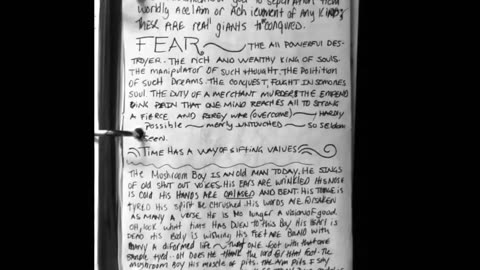 to separation from
worldly acclaim or achievement of any kind;
these are real giants to conquered.
FEAR — The all powerful des-
troyer. The rich and wealthy king of souls.
The manipulator of such thought. The polition
of such dreams. The conquest, fought in someones
soul. The duty of a merchant murder; the
pain that one mind reaches all to strong
a fierce and war (overcome) — hardly
possible — merly untouched — so seldom
seen.
Time has a way of sifting values
The Mushroom Boy is an old man today, he sings
of old shut out voices. His ears are wrinkled his nose
is cold his hands are calased and bent. His throte is
tyred his spirit be chrushed his words are
as many a verse. He is no longer a vision of good.
Oh, look what time has to this boy his heart is
dead his body is wishing his feet are band with
many a diformed life — one foot with that one
eyed. Oh does he thank the lord for that foot. The
mushroom boy his muscle of pits. The arm pits I say